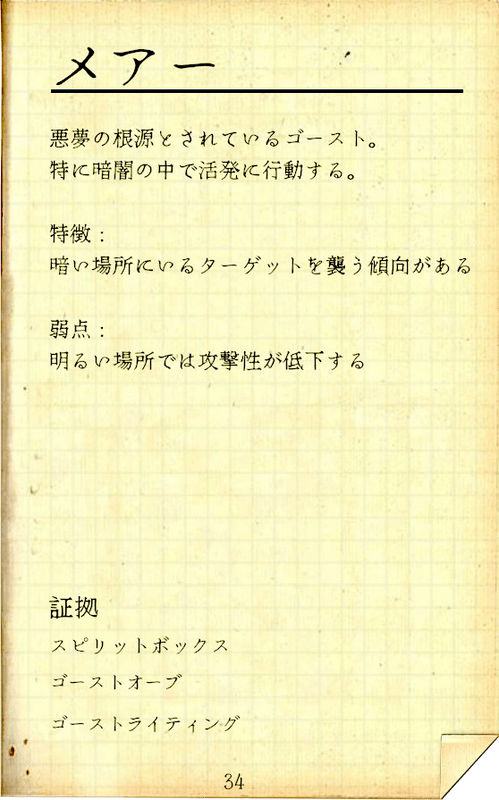 メアー
悪夢の根源とされているゴースト。
特に暗闇の中で活発に行動する。
特徴：
暗い場所にいるターゲットを襲う傾向がある
弱点：
明るい場所では攻撃性が低下する
証拠
スピリットボックス
ゴーストオーブ
ゴーストライティング
34